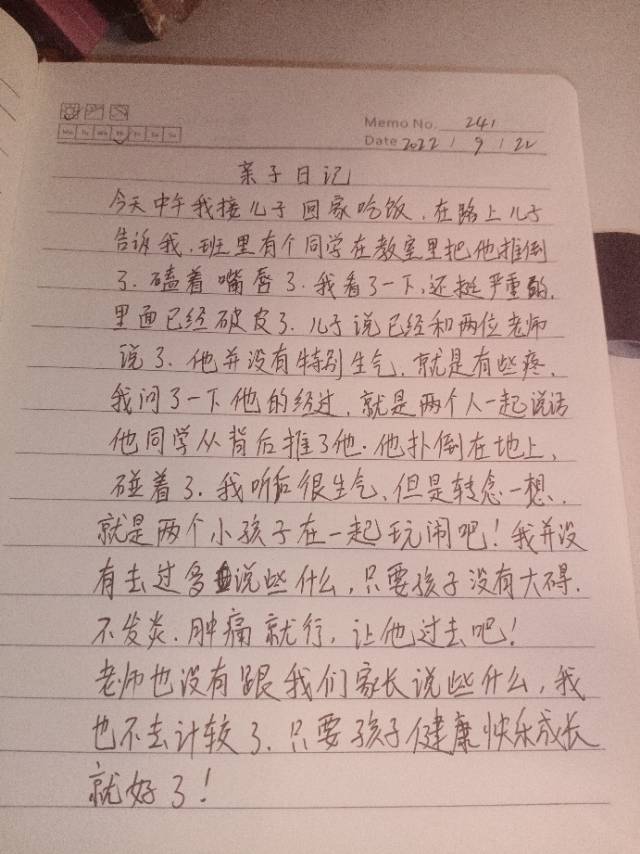 Mo Tu We Th Fr Sa Su
Memo No. 241
Date 2022 / 9 / 22
亲子日记
今天中午我接儿子回家吃饭,在路上儿子
告诉我,班里有个同学在教室里把他推倒
了.磕着嘴唇了.我看了一下,还挺严重的,
里面已经破皮了.儿子说已经和两位老师
说了.他并没有特别生气,就是有些疼,
我问了一下他的经过,就是两个人一起说话
他同学从背后推了他.他扑倒在地上,
碰着了.我听后很生气,但是转念一想,
就是两个小孩子在一起玩闹吧!我并没
有去过多说些什么,只要孩子没有大碍.
不发炎.肿痛就行,让他过去吧!
老师也没有跟我们家长说些什么,我
也不去计较了.只要孩子健康快乐成长
就好了!